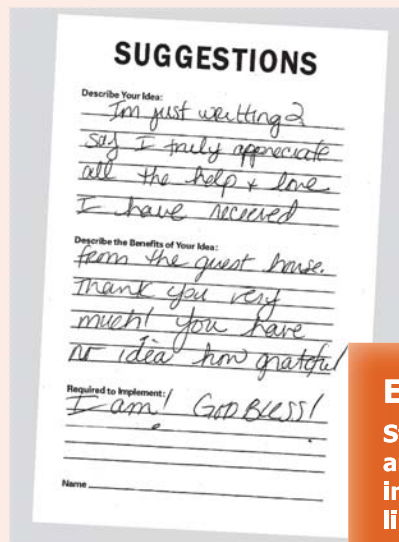 SUGGESTIONS
Describe Your Idea:
Im just writting 2
say I truly appreciate
all the help + love
I have recieved
Describe the Benefits of Your Idea:
from the guest house.
Thank you very
much! You have
no idea how grateful
Required to Implement:
I am! GOD BLESS!
Name